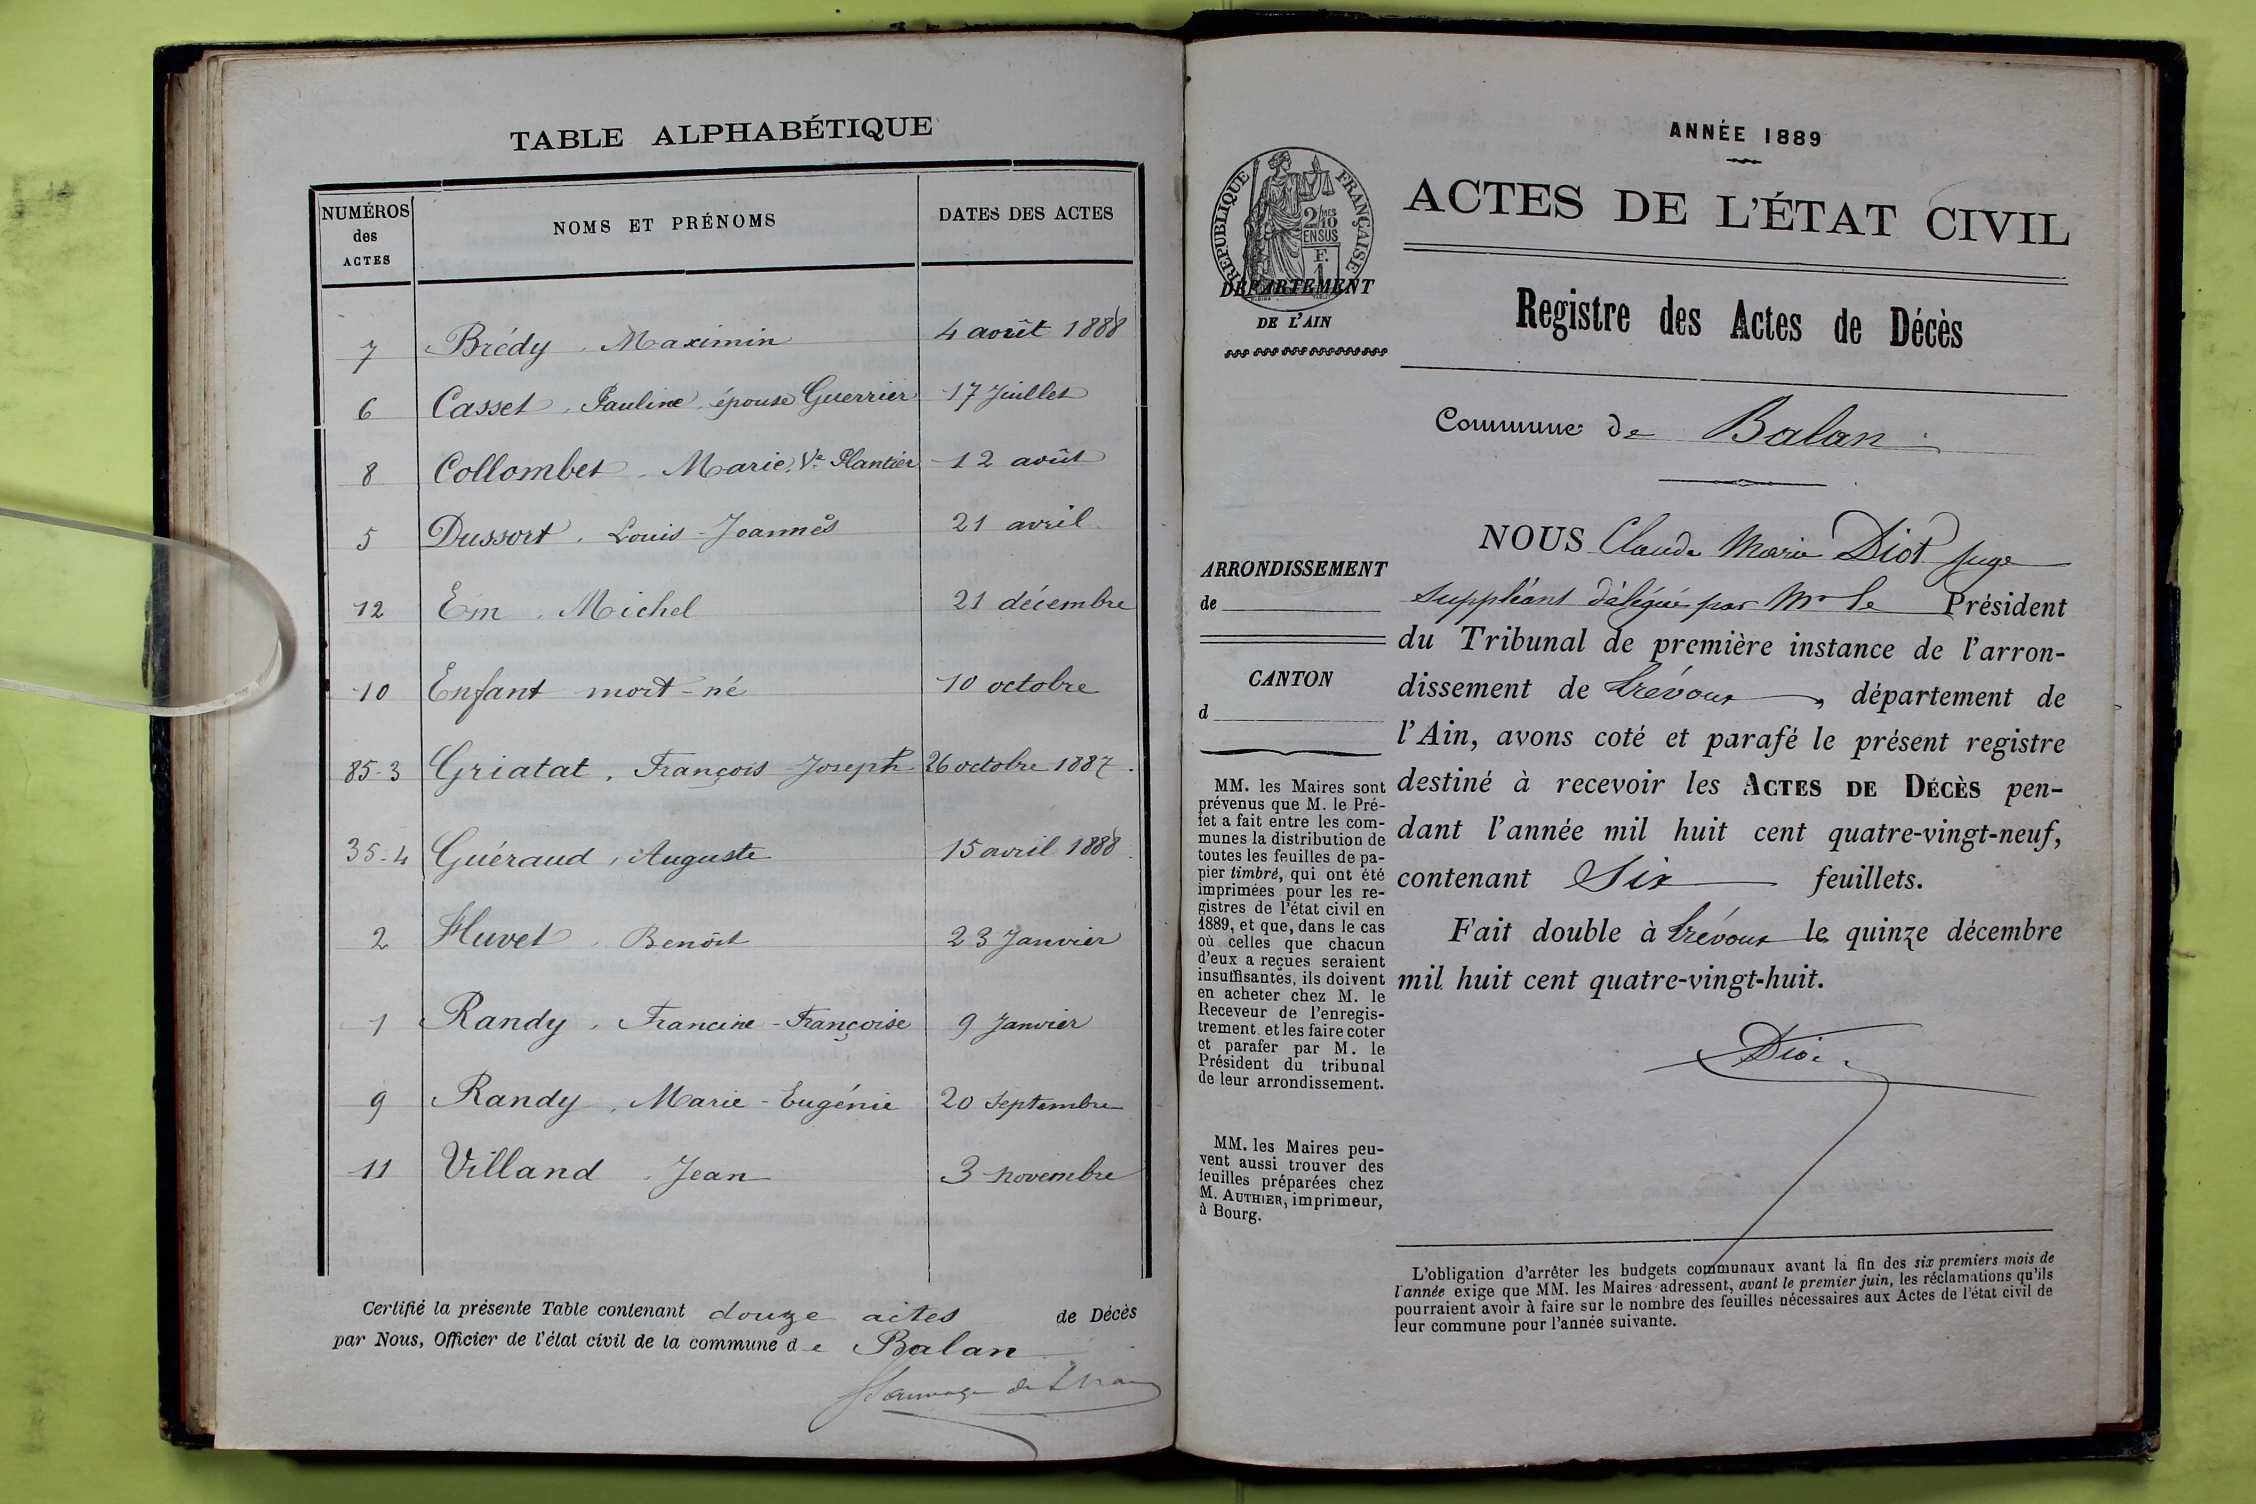 TABLE ALPHABÉTIQUE
NUMÉROS des ACTES NOMS ET PRÉNOMS DATES DES ACTES
7 Brédy, Maximin 4 août 1888
6 Casset, Pauline, épouse Guerrier 17 Juillet
8 Collombet, Marie, Ve Plantier 12 août
5 Dussort, Louis-Joannès 21 avril
12 Em, Michel 21 décembre
10 Enfant mort-né 10 octobre
85-3 Griatat, François Joseph 26 octobre 1887
35-4 Guéraud, Auguste 15 avril 1888
2 Huvet, Benoît 23 Janvier
1 Randy, Francine-Françoise 9 Janvier
9 Randy, Marie-Eugénie 20 septembre
11 Villand, Jean 3 novembre
Certifié la présente Table contenant douze actes de Décès
par Nous, Officier de l'état civil de la commune de Balan
ANNÉE 1889
ACTES DE L'ÉTAT CIVIL
RÉPUBLIQUE FRANÇAISE
2/10MES
EN SUS
F.
1
DÉPARTEMENT
DE L'AIN
Registre des Actes de Décès
Commune de Balan
ARRONDISSEMENT
de
CANTON
d
MM. les Maires sont
prévenus que M. le Pré-
fet a fait entre les com-
munes la distribution de
toutes les feuilles de pa-
pier timbré, qui ont été
imprimées pour les re-
gistres de l'état civil en
1889, et que, dans le cas
où celles que chacun
d'eux a reçues seraient
insuffisantes, ils doivent
en acheter chez M. le
Receveur de l'enregis-
trement et les faire coter
et parafer par M. le
Président du tribunal
de leur arrondissement.
MM. les Maires peu-
vent aussi trouver des
feuilles préparées chez
M. AUTHIER, imprimeur,
à Bourg.
NOUS Claude Marie Diot Juge
suppléant délégué par Mr le Président
du Tribunal de première instance de l'arron-
dissement de Trévoux, département de
l'Ain, avons coté et parafé le présent registre
destiné à recevoir les ACTES DE DÉCÈS pen-
dant l'année mil huit cent quatre-vingt-neuf,
contenant Six feuillets.
Fait double à Trévoux le quinze décembre
mil huit cent quatre-vingt-huit.
Diot
L'obligation d'arrêter les budgets communaux avant la fin des six premiers mois de
l'année exige que MM. les Maires adressent, avant le premier juin, les réclamations qu'ils
pourraient avoir à faire sur le nombre des feuilles nécessaires aux Actes de l'état civil de
leur commune pour l'année suivante.